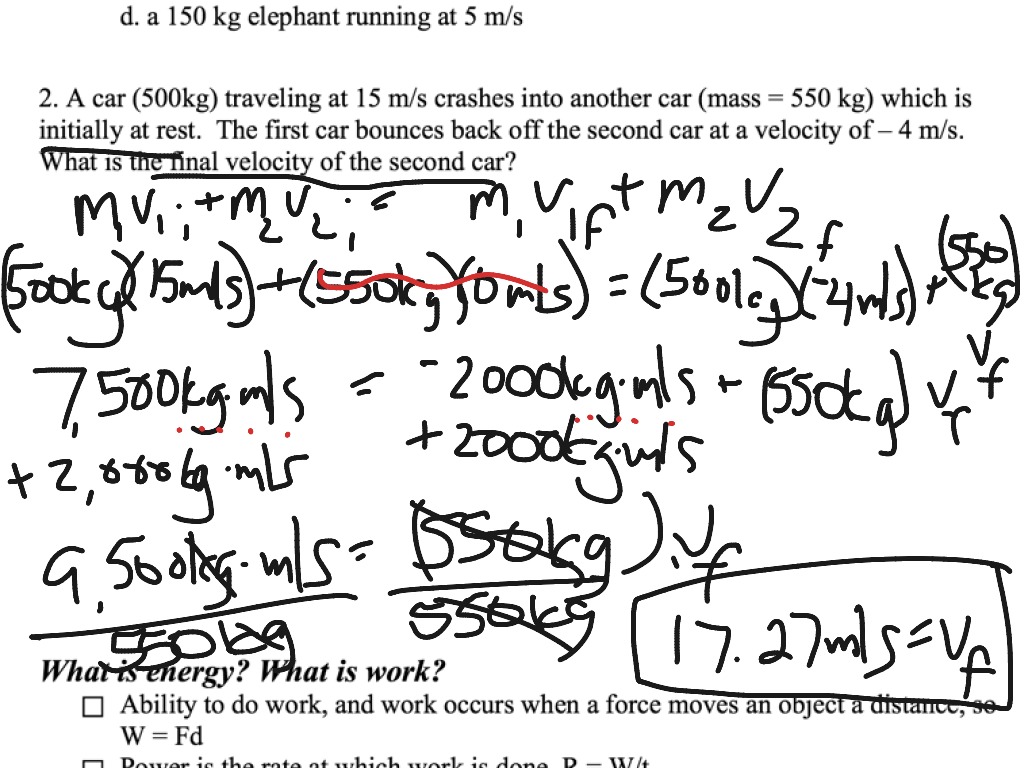 d. a 150 kg elephant running at 5 m/s
2. A car (500kg) traveling at 15 m/s crashes into another car (mass = 550 kg) which is
initially at rest. The first car bounces back off the second car at a velocity of – 4 m/s.
What is the final velocity of the second car?
m₁v₁ᵢ + m₂v₂ᵢ = m₁v₁f + m₂v₂f
(500kg)(15m/s) + (550kg)(0m/s) = (500kg)(-4m/s) + (550kg)vf
7,500kg·m/s = -2000kg·m/s + (550kg)vf
+2,000kg·m/s +2000kg·m/s
9,500kg·m/s = (550kg).vf
550kg 550kg
17.27m/s = vf
What is energy? What is work?
☐ Ability to do work, and work occurs when a force moves an object a distance, so
W = Fd
☐ Power is the rate at which work is done. P = W/t